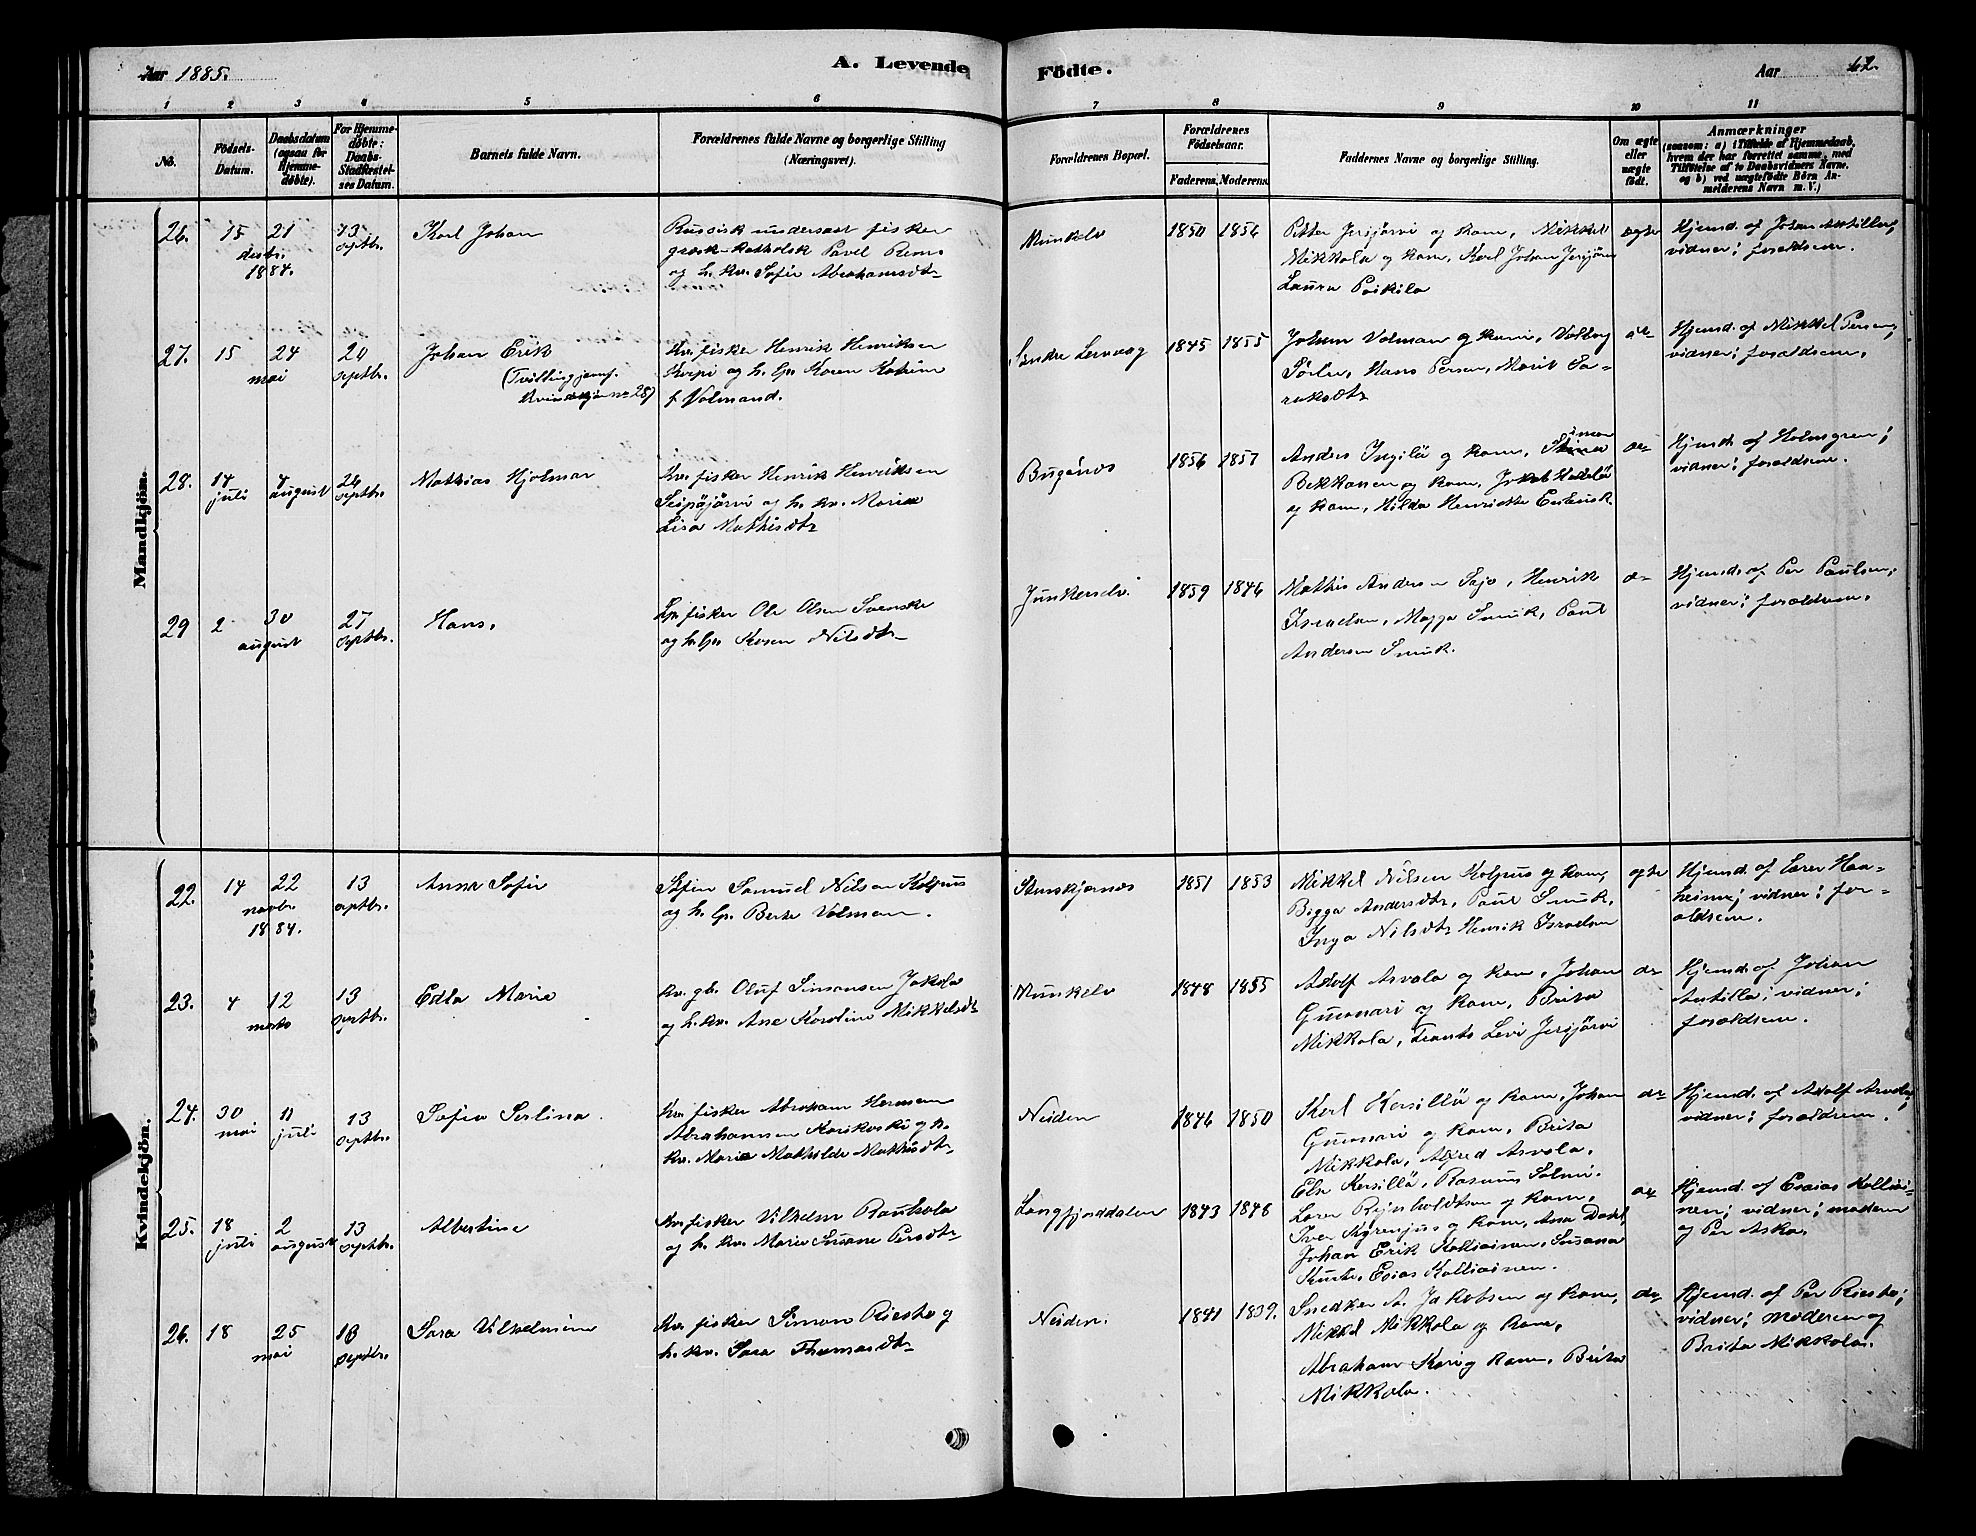 Aar 1885.
A. Levende
Födte.
Aar
62.
1 2 3 4 5 6 7 8 9 10 11
No.
Födsels-
Datum.
Daabsdatum
(ogsaa for
Hjemme-
döbte).
For Hjemme-
döbte:
Daabs-
Stadfæstel-
ses Datum.
Barnets fulde Navn.
Forældrenes fulde Navne og borgerlige Stilling
(Næringsvei).
Forældrenes Bopæl.
Forældrenes
Födselsaar.
Faderens. Moderens.
Faddernes Navne og borgerlige Stilling.
Om ægte
eller
uægte
födt.
Anmærkninger
(saasom: a) i Tilfælde af Hjemmedaab,
hvem der har forrettet samme, med
Tilföielse af to Daabsvidners Navne.
og b) ved uægtefödte Börn An-
melderens Navn m. V.)
Mandkjön.
26.
15
decbr.
1884.
21
13
septbr.
Karl Johan
Russisk undersaat fisker
græsk-katholsk Pavel
og h. kv. Sofie Abrahamsdtr
Munkelv
1850 1854
Petter Jerijærvi og kone, Mikkel
Mikkola og kone, Karl Johan Jerijærvi
Laura Poikila
ægte
Hjemd. af Johan Anttilla;
vidner; forældrene.
27.
15
24
mai
20
septbr.
Johan Erik
(Tvilling jevnf.
Kvindekjøn no 28)
Kv. fisker Henrik Henriksen
Kvipi og h. lp. Karen Katrine
f. Volmand.
Søndre Lervaag
1845 1855
Johan Volman og kone, Volborg
Sørlu, Hans Persen, Marit
Hjemd. af Mikkel Persen;
vidner; forældrene.
28.
14
juli
4
august
24
septbr.
Mathias Hjalmar
Kv. fisker Henrik Henriksen
Seipäjärvi og h. kv. Maria
Lisa Mathisdtr
Bugønes
1856 1857
Anders Ingilä og kone, Simon
Bekkanen og kone, Jakob Hedelä
og kone, Hilda Henrikke
Hjemd. af Holmgren;
vidner; forældrene.
29
2
30
august
27
septbr.
Hans.
Lp. fisker Ole Olsen Svenske
og h. lp. Karen Nilsdtr
Junkerselv.
1859 1846
Mathis Andersen Sajo, Henrik
Israelsen, Magga Smuk, Paul
Andersen Smuk.
Hjemd. af Per Paulsen;
vidner; forældrene.
Kvindekjön.
22.
14
novbr.
1884.
22
13
septbr.
Anna Sofie
Søfin Samuel Nilsen Kolpus
og h. lp. Berte Volman.
Stenskjærnes
1851 1853
Mikkel Nilsen Kolpus og kone,
Bigga Andersdtr, Paul Smuk,
Inga Nilsdtr Henrik Israelsen
ægte
Hjemd. af Lærer Haa-
heim; vidner; for-
ældrene.
23.
4
12
marts
13
septbr.
Edla Marie
kv. gb. Oluf Simonsen Jakola
og h. kv. Ane Karoline Mikkelsdtr
Munkelv
1848 1855
Adolf Asvola og kone, Johan
Guonari og kone, Brita
Mikkola, Frants Levi Jerijärvi
Hjemd. af Johan
Antilla; vidner;
forældrene.
24.
30
mai
11
juli
13
septbr.
Sofia Serlina
Kv. fisker Abraham Herman
Abrahamsen Karikoski og h.
kv. Maria Mathilde Mathisdtr
Neiden
1846 1850
Karl Kersillä og kone, Johan
Guonari og kone, Brita
Mikkola, Alfred Asvola,
Else Kersillä, Rasmus Salmi.
Hjemd. af Adolf Asvola;
vidner; forældrene.
25.
18
juli
2
august
13
septbr.
Albertine
Kv. fisker Vilhelm Rauhala
og h. kv. Maria Susane Persdtr
Langfjorddalen
1843 1848
Lærer Rejnholdtsen og kone,
Iver Kyrenjus og kone, Ana Dahl,
Johan Erik Kolliainen, Susana
Esias Kolliainen.
Hjemd. af Esaias Kolliai-
nen; vidner; moderen
og Per Aska.
26.
18
25
mai
13
septbr.
Sara Vilhelmine
Kv. fisker Simon Riesto og
h. kv. Sara Thomasdtr
Neiden.
1841 1839.
Snedker A. Jakobsen og kone,
Mikkel Mikkola og kone,
Abraham Kari og kone, Brita
Mikkola.
Hjemd. af Per Riesto;
vidner; moderen og
Brita Mikkola.